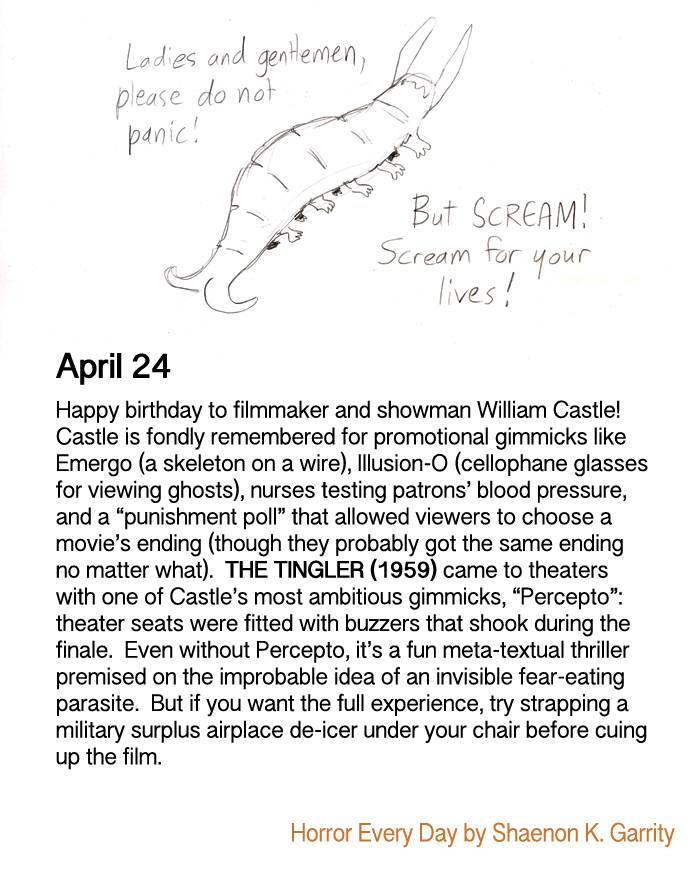 Ladies and gentlemen,
please do not
panic!
But SCREAM!
Scream for your
lives!
April 24
Happy birthday to filmmaker and showman William Castle!
Castle is fondly remembered for promotional gimmicks like
Emergo (a skeleton on a wire), Illusion-O (cellophane glasses
for viewing ghosts), nurses testing patrons’ blood pressure,
and a “punishment poll” that allowed viewers to choose a
movie’s ending (though they probably got the same ending
no matter what).  THE TINGLER (1959) came to theaters
with one of Castle’s most ambitious gimmicks, “Percepto”:
theater seats were fitted with buzzers that shook during the
finale.  Even without Percepto, it’s a fun meta-textual thriller
premised on the improbable idea of an invisible fear-eating
parasite.  But if you want the full experience, try strapping a
military surplus airplace de-icer under your chair before cuing
up the film.
Horror Every Day by Shaenon K. Garrity